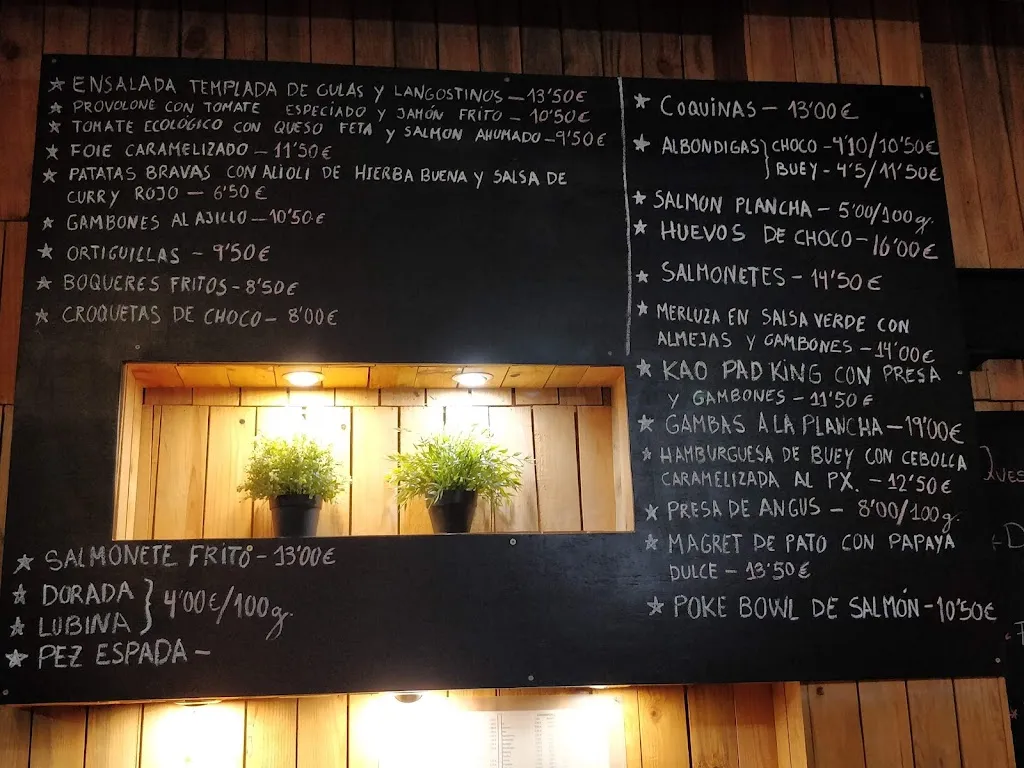 ★ ENSALADA TEMPLADA DE GULAS Y LANGOSTINOS — 13'50€
★ PROVOLONE CON TOMATE ESPECIADO Y JAMÓN FRITO - 10'50€
★ TOMATE ECOLÓGICO CON QUESO FETA Y SALMON AHUMADO - 9'50€
★ FOIE CARAMELIZADO — 11'50€
★ PATATAS BRAVAS CON ALIOLI DE HIERBA BUENA Y SALSA DE
CURRY ROJO — 6'50€
★ GAMBONES AL AJILLO — 10'50€
★ ORTIGUILLAS - 9'50€
★ BOQUERES FRITOS - 8'50€
★ CROQUETAS DE CHOCO - 8'00€
★ SALMONETE FRITO - 13'00€
★ DORADA
★ LUBINA } 4'00€/100g.
★ PEZ ESPADA -
★ COQUINAS — 13'00€
★ ALBONDIGAS } CHOCO - 4'10/10'50€
BUEY - 4'5/11'50€
★ SALMON PLANCHA - 5'00/100g.
★ HUEVOS DE CHOCO - 16'00€
★ SALMONETES - 14'50€
★ MERLUZA EN SALSA VERDE CON
ALMEJAS Y GAMBONES - 14'00€
★ KAO PAD KING CON PRESA
Y GAMBONES - 11'50€
★ GAMBAS A LA PLANCHA — 19'00€
★ HAMBURGUESA DE BUEY CON CEBOLLA
CARAMELIZADA AL PX. - 12'50€
★ PRESA DE ANGUS - 8'00/100g.
★ MAGRET DE PATO CON PAPAYA
DULCE - 13'50€
★ POKE BOWL DE SALMÓN - 10'50€